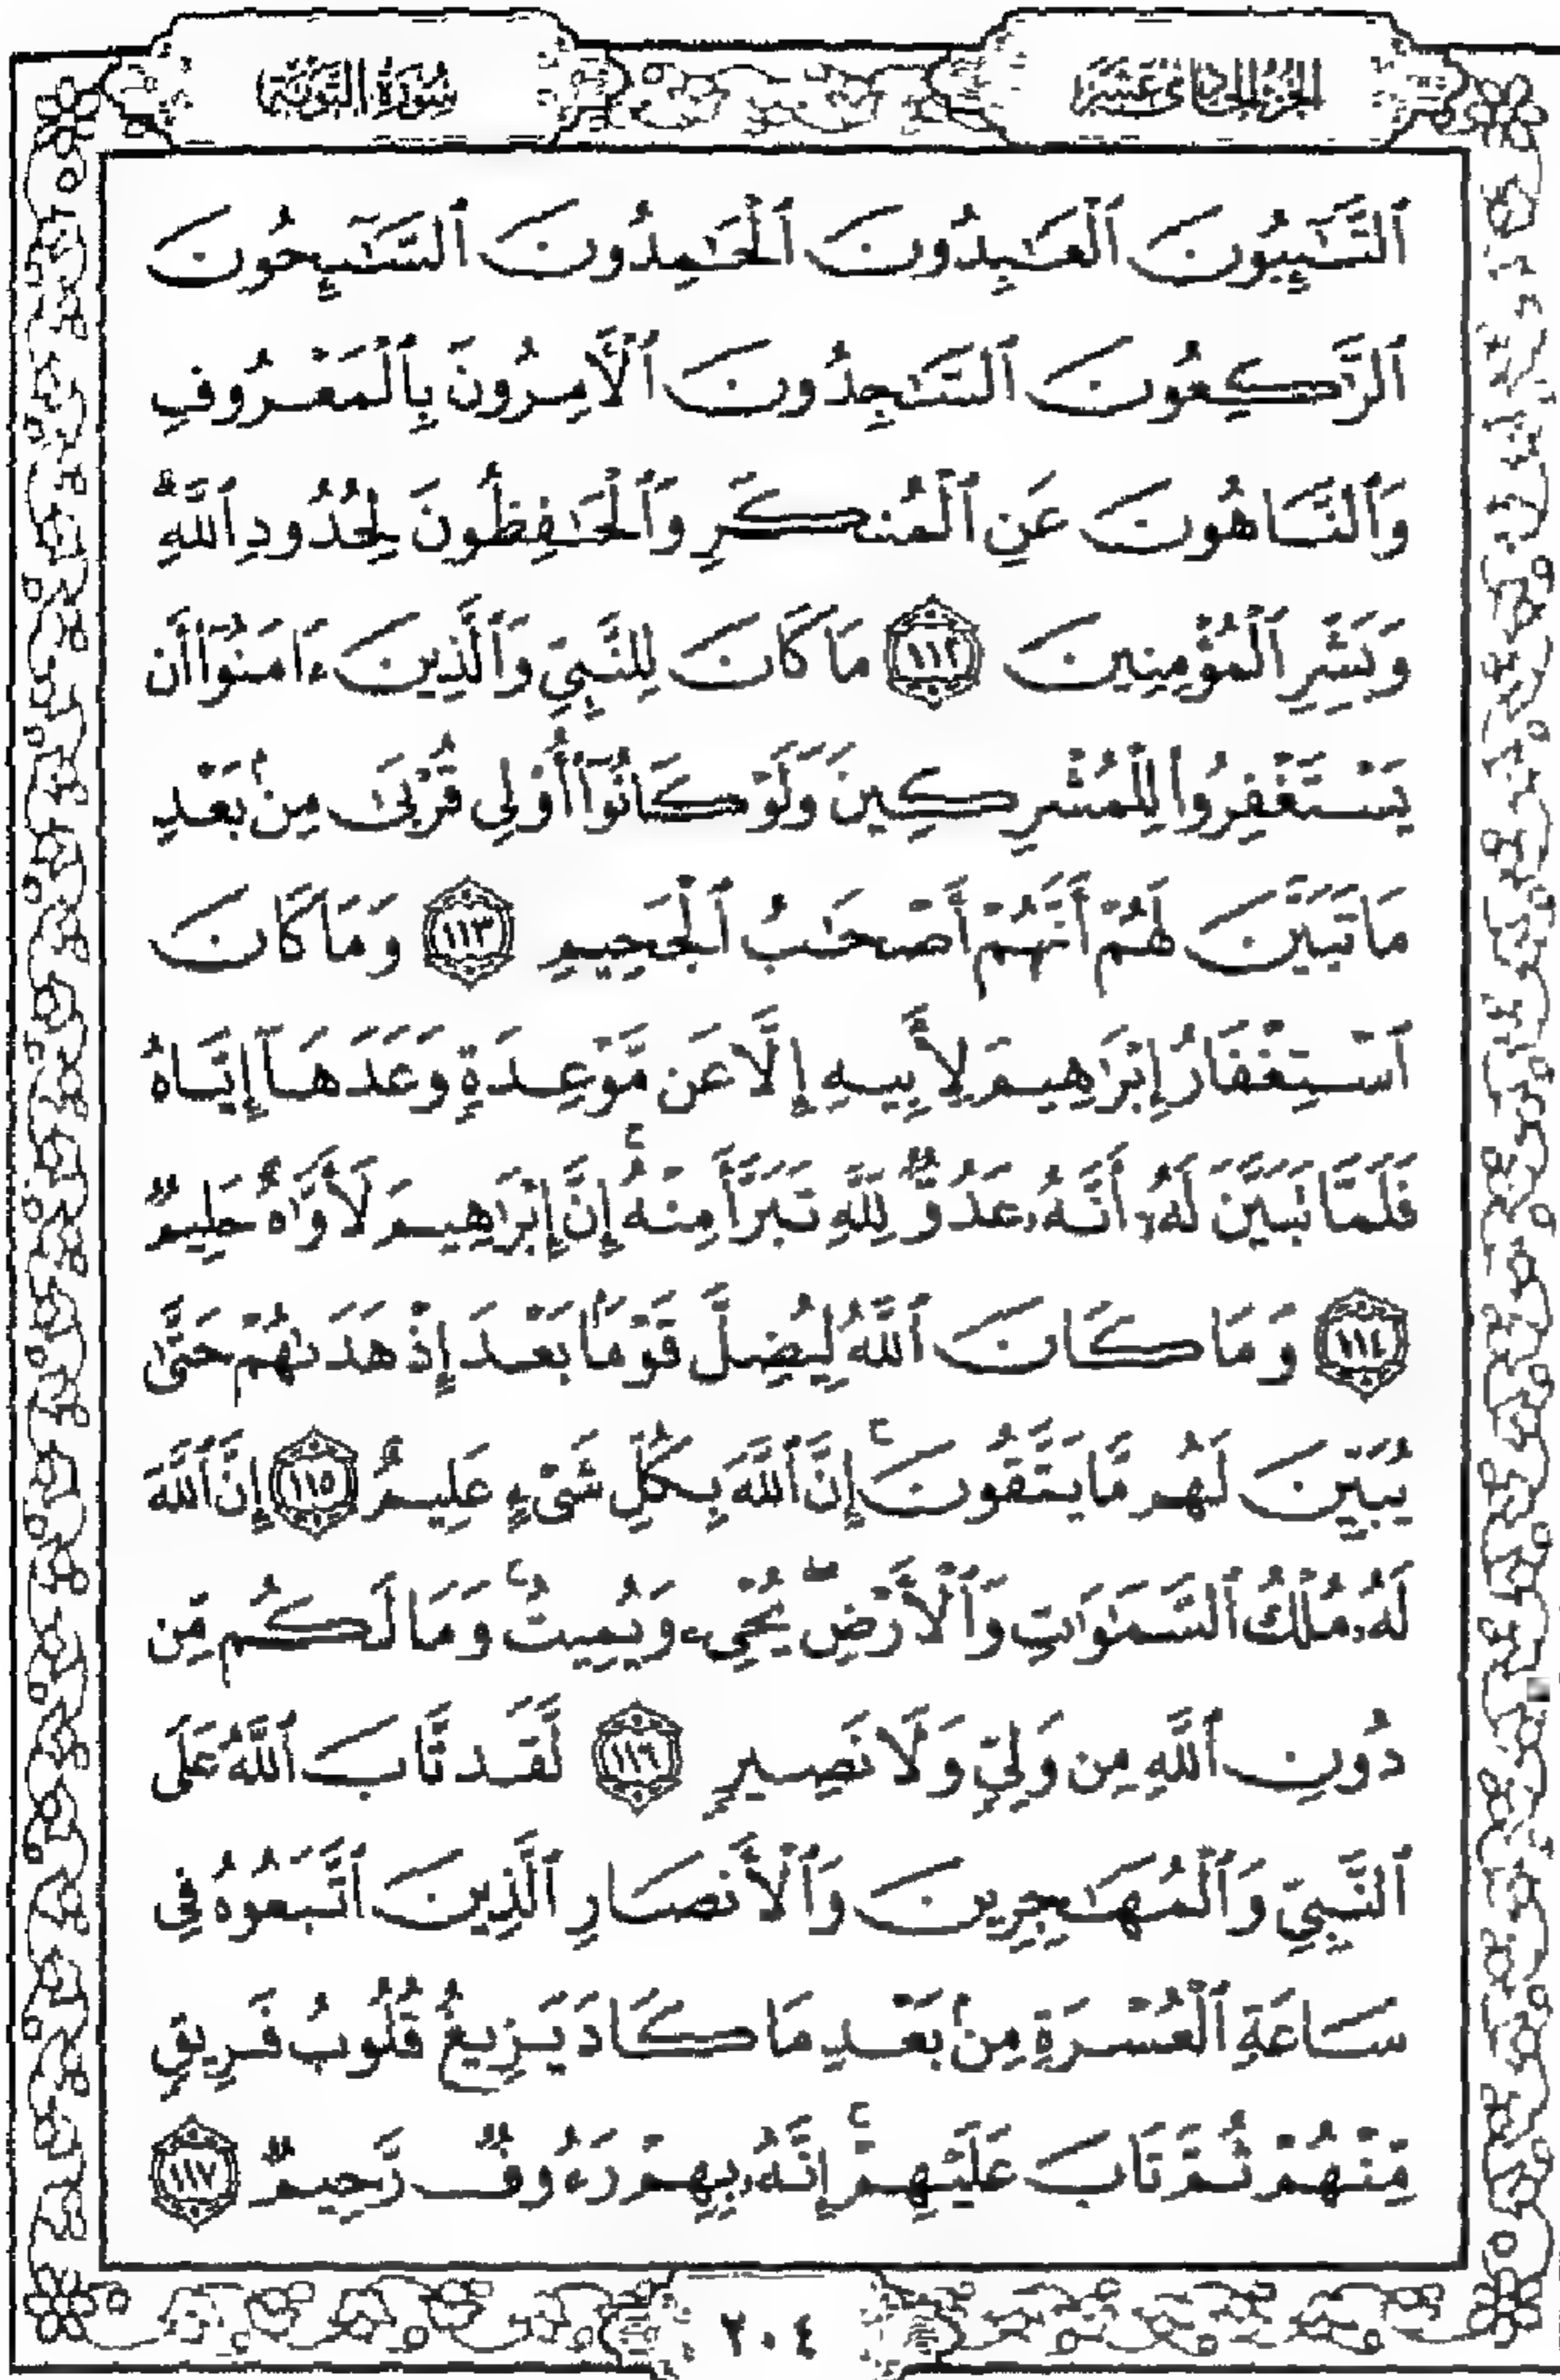 الجزء الحادي عشر
سورة التوبة
ٱلتَّٰٓئِبُونَ ٱلْعَٰبِدُونَ ٱلْحَٰمِدُونَ ٱلسَّٰٓئِحُونَ
ٱلرَّٰكِعُونَ ٱلسَّٰجِدُونَ ٱلْءَامِرُونَ بِٱلْمَعْرُوفِ
وَٱلنَّاهُونَ عَنِ ٱلْمُنكَرِ وَٱلْحَٰفِظُونَ لِحُدُودِ ٱللَّهِۗ
وَبَشِّرِ ٱلْمُؤْمِنِينَ ١١٢ مَا كَانَ لِلنَّبِىِّ وَٱلَّذِينَ ءَامَنُوٓا۟ أَن
يَسْتَغْفِرُوا۟ لِلْمُشْرِكِينَ وَلَوْ كَانُوٓا۟ أُو۟لِى قُرْبَىٰ مِنۢ بَعْدِ
مَا تَبَيَّنَ لَهُمْ أَنَّهُمْ أَصْحَٰبُ ٱلْجَحِيمِ ١١٣ وَمَا كَانَ
ٱسْتِغْفَارُ إِبْرَٰهِيمَ لِأَبِيهِ إِلَّا عَن مَّوْعِدَةٍ وَعَدَهَآ إِيَّاهُ
فَلَمَّا تَبَيَّنَ لَهُۥٓ أَنَّهُۥ عَدُوٌّ لِّلَّهِ تَبَرَّأَ مِنْهُ ۚ إِنَّ إِبْرَٰهِيمَ لَأَوَّٰهٌ حَلِيمٌ
١١٤ وَمَا كَانَ ٱللَّهُ لِيُضِلَّ قَوْمًۢا بَعْدَ إِذْ هَدَىٰهُمْ حَتَّىٰ
يُبَيِّنَ لَهُم مَّا يَتَّقُونَ ۚ إِنَّ ٱللَّهَ بِكُلِّ شَىْءٍ عَلِيمٌ ١١٥ إِنَّ ٱللَّهَ
لَهُۥ مُلْكُ ٱلسَّمَٰوَٰتِ وَٱلْأَرْضِ ۖ يُحْىِۦ وَيُمِيتُ ۚ وَمَا لَكُم مِّن
دُونِ ٱللَّهِ مِن وَلِىٍّ وَلَا نَصِيرٍ ١١٦ لَّقَد تَّابَ ٱللَّهُ عَلَى
ٱلنَّبِىِّ وَٱلْمُهَٰجِرِينَ وَٱلْأَنصَارِ ٱلَّذِينَ ٱتَّبَعُوهُ فِى
سَاعَةِ ٱلْعُسْرَةِ مِنۢ بَعْدِ مَا كَادَ يَزِيغُ قُلُوبُ فَرِيقٍ
مِّنْهُمْ ثُمَّ تَابَ عَلَيْهِمْ ۚ إِنَّهُۥ بِهِمْ رَءُوفٌ رَّحِيمٌ ١١٧
٢٠٤